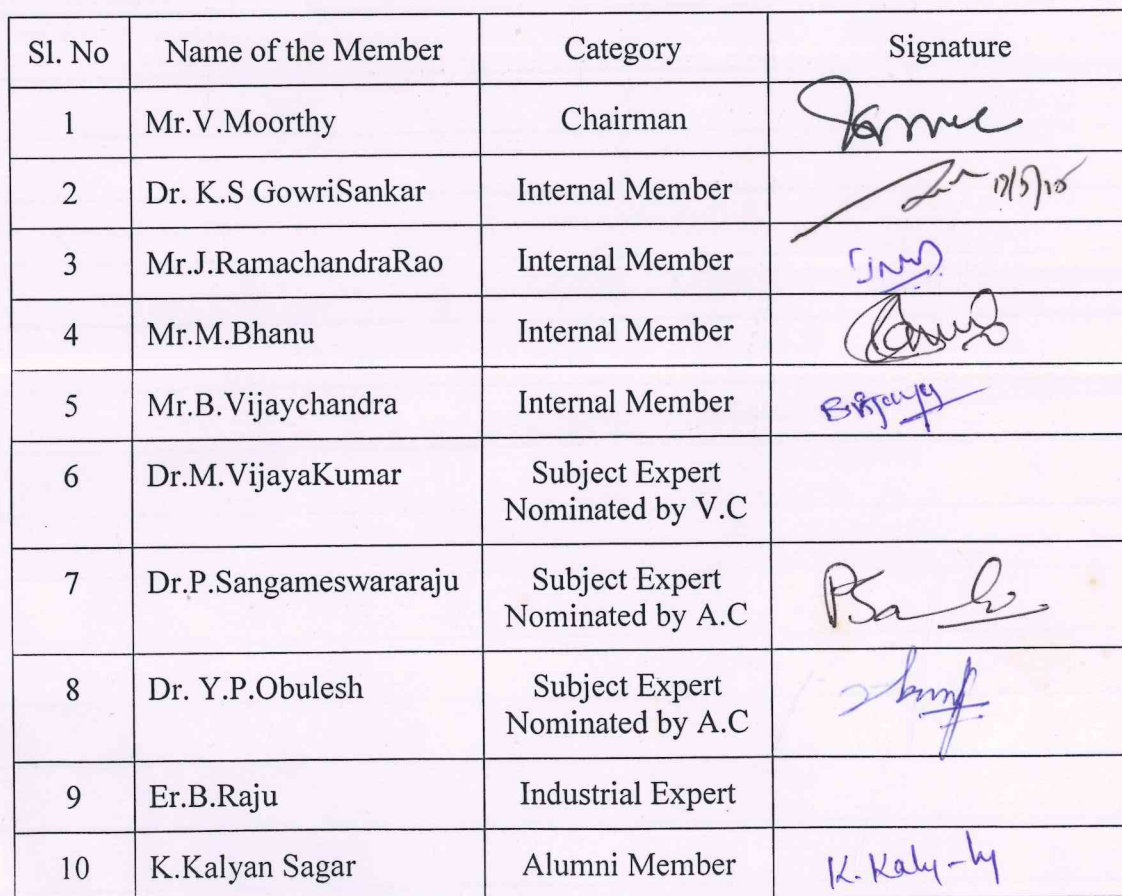 Sl. No Name of the Member Category Signature
1 Mr.V.Moorthy Chairman
2 Dr. K.S GowriSankar Internal Member
3 Mr.J.RamachandraRao Internal Member
4 Mr.M.Bhanu Internal Member
5 Mr.B.Vijaychandra Internal Member
6 Dr.M.VijayaKumar Subject Expert
Nominated by V.C
7 Dr.P.Sangameswararaju Subject Expert
Nominated by A.C
8 Dr. Y.P.Obulesh Subject Expert
Nominated by A.C
9 Er.B.Raju Industrial Expert
10 K.Kalyan Sagar Alumni Member